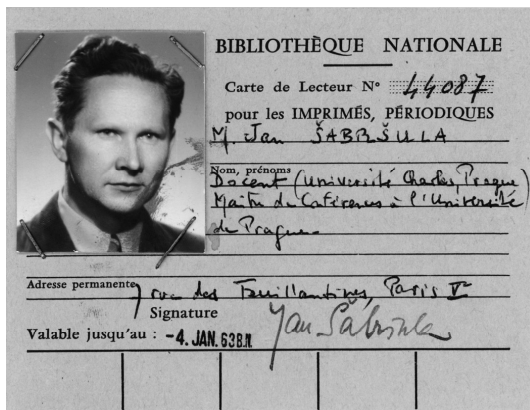 BIBLIOTHÈQUE NATIONALE
Carte de Lecteur N° 44087
pour les IMPRIMÉS, PÉRIODIQUES
M. Jan ŠABRŠULA
Nom, prénoms
Docent (Université Charles, Prague)
Maître de Conférences à l'Université
de Prague
Adresse permanente 7 rue des Feuillantines, Paris V
Signature Jan Šabršula
Valable jusqu'au : -4. JAN. 63 B.N.